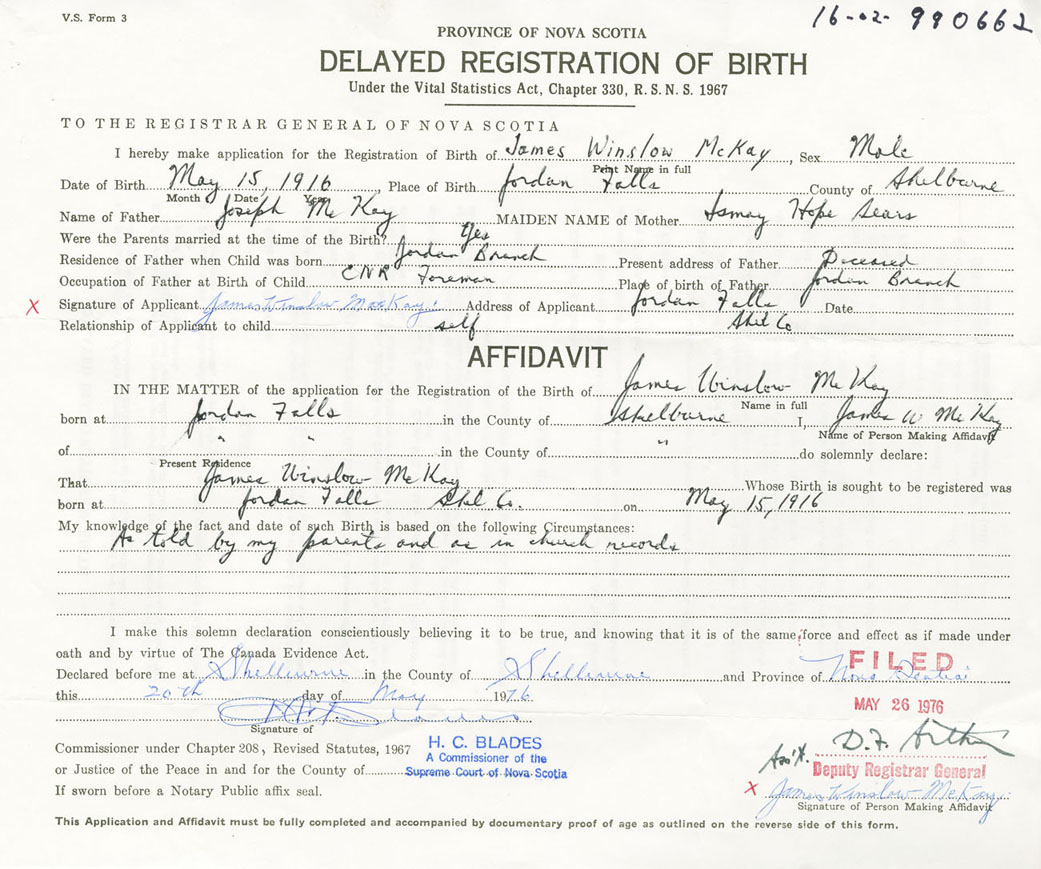 V.S. Form 3
16-02-990662
PROVINCE OF NOVA SCOTIA
DELAYED REGISTRATION OF BIRTH
Under the Vital Statistics Act, Chapter 330, R.S.N.S. 1967
TO THE REGISTRAR GENERAL OF NOVA SCOTIA
I hereby make application for the Registration of Birth of James Winslow McKay, Sex Male
Print Name in full
Date of Birth May 15, 1916, Place of Birth Jordan Falls County of Shelburne
Month Date Year
Name of Father Joseph McKay MAIDEN NAME of Mother Ismay Hope Sears
Were the Parents married at the time of the Birth? Yes
Residence of Father when Child was born Jordan Branch Present address of Father Deceased
Occupation of Father at Birth of Child CNR Foreman Place of birth of Father Jordan Branch
X Signature of Applicant James Winslow MacKay Address of Applicant Jordan Falls Date
Relationship of Applicant to child self Shel Co
AFFIDAVIT
IN THE MATTER of the application for the Registration of the Birth of James Winslow McKay
Name in full
born at Jordan Falls in the County of Shelburne I, James W McKay
Name of Person Making Affidavit
of " " in the County of " do solemnly declare:
Present Residence
That James Winslow McKay Whose Birth is sought to be registered was
born at Jordan Falls Shel Co. on May 15, 1916
My knowledge of the fact and date of such Birth is based on the following Circumstances:
As told by my parents and as in church records
I make this solemn declaration conscientiously believing it to be true, and knowing that it is of the same force and effect as if made under
oath and by virtue of The Canada Evidence Act.
Declared before me at Shelburne in the County of Shelburne and Province of Nova Scotia
FILED
this 20th day of May 1976
MAY 26 1976
Signature of
Commissioner under Chapter 208, Revised Statutes, 1967
H. C. BLADES
A Commissioner of the
Supreme Court of Nova Scotia
or Justice of the Peace in and for the County of
If sworn before a Notary Public affix seal.
Ass't. D.F.
Deputy Registrar General
X James Winslow McKay
Signature of Person Making Affidavit
This Application and Affidavit must be fully completed and accompanied by documentary proof of age as outlined on the reverse side of this form.